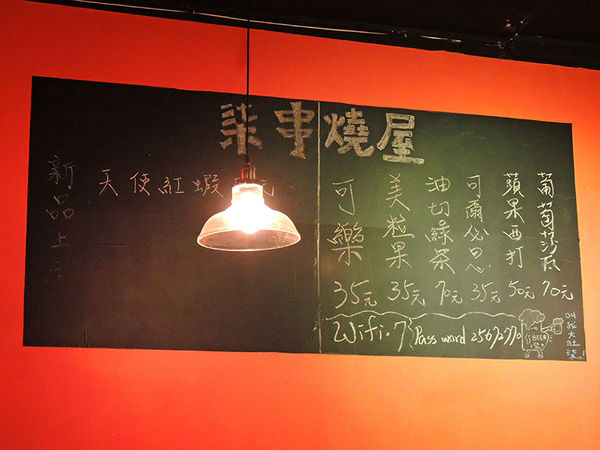 柒串燒屋
新品上市
天使紅蝦 元
可樂 35元
美粒果 35元
油切綠茶 70元
可爾必思 35元
蘋果西打 50元
葡萄莎瓦 70元
Wifi.7
Pass word
BEER